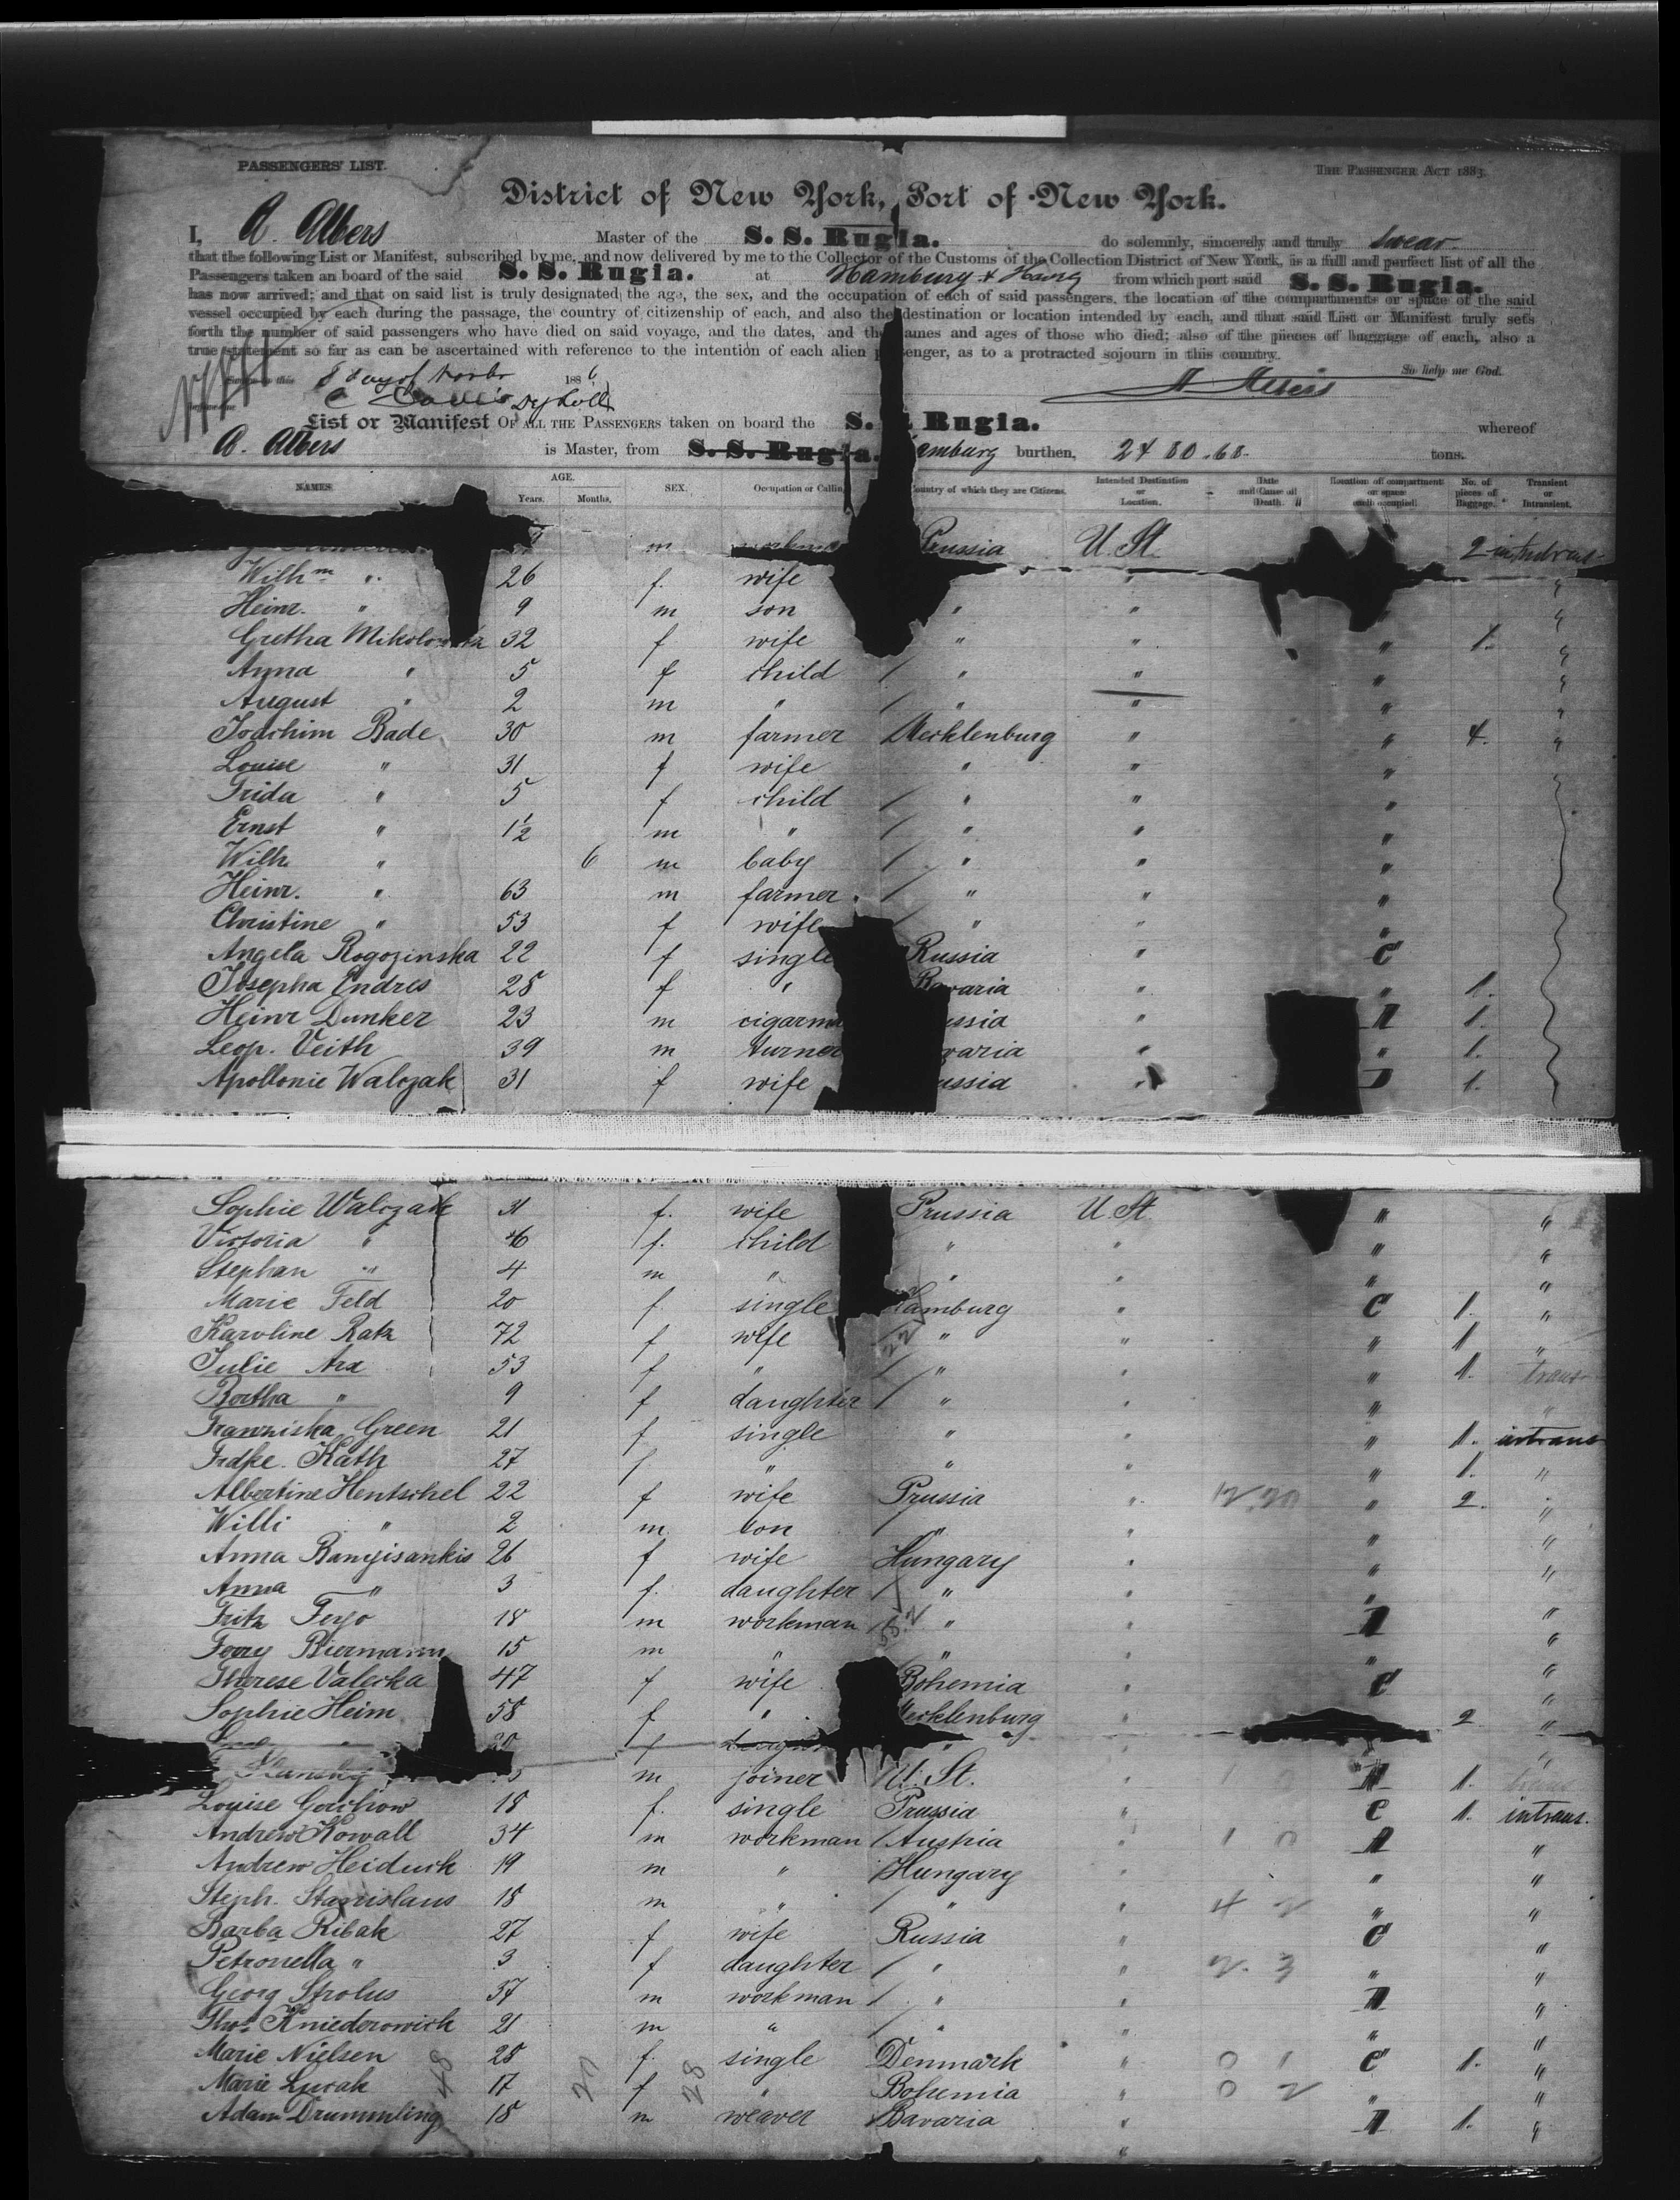 PASSENGERS' LIST.
THE PASSENGER ACT 1883.
District of New York, Port of New York.
I, A. Albers Master of the S. S. Rugia. do solemnly, sincerely and truly swear
that the following List or Manifest, subscribed by me, and now delivered by me to the Collector of the Customs of the Collection District of New York, is a full and perfect list of all the
Passengers taken on board of the said S. S. Rugia. at Hamburg & from which port said S. S. Rugia.
has now arrived; and that on said list is truly designated the age, the sex, and the occupation of each of said passengers, the location of the compartments or space of the said
vessel occupied by each during the passage, the country of citizenship of each, and also the destination or location intended by each, and that said List or Manifest truly sets
forth the number of said passengers who have died on said voyage, and the dates, and the names and ages of those who died; also of the pieces of baggage of each, also a
true statement so far as can be ascertained with reference to the intention of each alien passenger, as to a protracted sojourn in this country.
So help me God.
8 day of 1886
A Albers
List or Manifest OF ALL THE PASSENGERS taken on board the S. S. Rugia. whereof
A. Albers is Master, from S. S. Rugia. Hamburg burthen, 2480.68 tons.
NAMES. AGE. Years. Months. SEX. Occupation or Calling Country of which they are Citizens. Intended Destination or Location. Date and Cause of Death. Location of compartment or space each occupied. No. of pieces of Baggage. Transient or Intransient.
m Prussia U. St. 2
Wilhm " 26 f. wife "
Heinr. " 9 m son " "
Gretha 32 f wife " " " 1. "
Anna " 5 f child " " " "
August " 2 m " " " " "
Joachim Bade 30 m farmer Mecklenburg " " 4. "
Louise " 31 f wife " " "
Frida " 5 f child " " "
Ernst " 1½ m " " " "
Wilh. " 6 m baby " " "
Heinr. " 63 m farmer " " "
Christine " 53 f wife " " "
Angela Rogozinska 22 f single Russia " C
Josepha Endres 28 f " Bavaria " " 1.
Heinr Dunker 23 m cigarm ussia " 1.
Leop. Veith 39 m turner varia " " 1.
Apollonie Walczak 31 f wife ussia " 1.
Sophie Walczak 31 f. wife Prussia U. St. " "
Victoria " f. child " " " "
Stephan " 4 m " " " " "
Marie Feld 20 f single Hamburg " C 1. "
Karoline Ratz 72 f wife " " " 1 "
Julie Arx 53 f " " " " 1. trans
Bertha " 9 f daughter " " " "
Franziska Green 21 f single " " " 1. intrans
Frdke. Kath 27 f " " " " 1. "
Albertine Hentschel 22 f wife Prussia " " 2. "
Willi " 2 m son " " " "
Anna Banyisankis 26 f wife Hungary " " "
Anna " 3 f. daughter " " "
Fritz Feyo 18 m workman " " "
Biermann 15 m " " " " "
Therese Valecka 47 f wife Bohemia " C "
Sophie Heim 58 f " Mecklenburg " 2 "
f " "
m joiner U. St. " 1.
Louise Gorchow 18 f. single Prussia " C 1. intrans.
Andrew Kowall 34 m workman Austria " 1 0 "
Andrew Heiduck 19 m " Hungary " " "
Steph. Stanislaus 18 m " " " 4 2 " "
Barba Ribak 27 f wife Russia " C "
Petronella " 3 f daughter " " 2. 3 " "
Georg Strolus 37 m workman " " "
Thos. Kniederowich 21 m " " " " "
Marie Nielsen 28 f. single Denmark " 0 1 C 1. "
Marie Lucak 17 f " Bohemia " 0 2 " "
Adam Drummling 18 m weaver Bavaria " 1. "
48 20 28